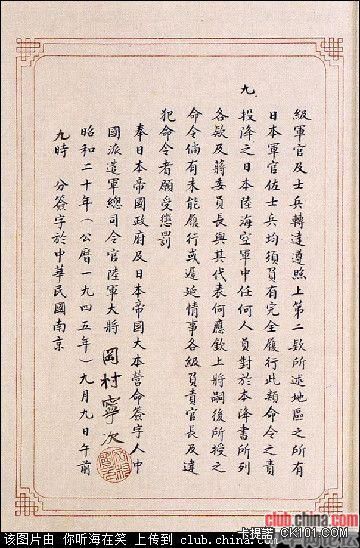 級軍官及士兵轉達遵照上第二款所述地區之所有
日本軍官佐士兵均須負有完全履行此類命令之責
九
投降之日本陸海空軍中任何人員對於本降書所列
各款及蔣委員長與其代表何應欽上將嗣後所授之
命令倘有未能履行或遲延情事各級負責官長及違
犯命令者願受懲罰
奉日本帝國政府及日本帝國大本營命簽字人中
國派遣軍總司令官陸軍大將 岡村寧次
昭和二十年(公曆一九四五年)九月九日午前
九時 分簽字於中華民國南京
club.china.com
卡提諾 CK101.com
该图片由 你听海在笑 上传到 club.china.com